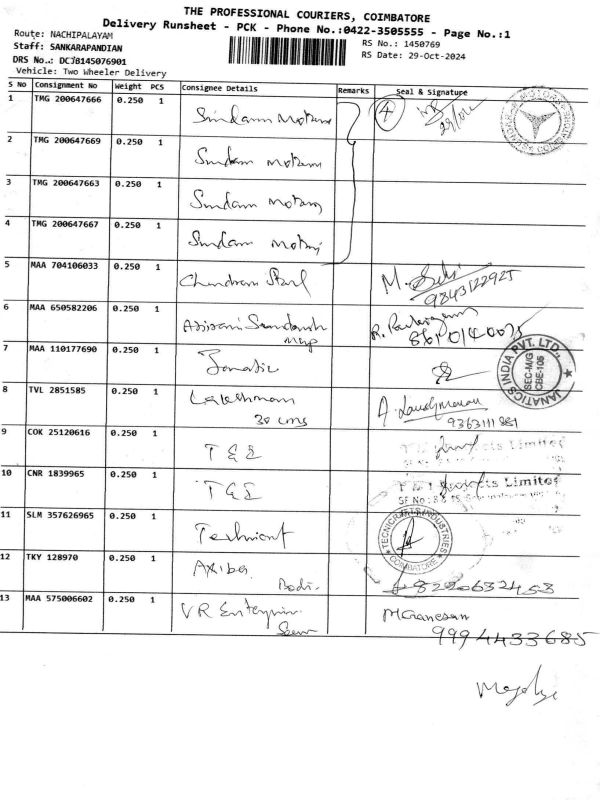 THE PROFESSIONAL COURIERS, COIMBATORE
Delivery Runsheet - PCK - Phone No.:0422-3505555 - Page No.:1
Route: NACHIPALAYAM
Staff: SANKARAPANDIAN
DRS No.: DCJB145076901
Vehicle: Two Wheeler Delivery
RS No.: 1450769
RS Date: 29-Oct-2024
S No Consignment No Weight PCS Consignee Details Remarks Seal & Signature
1 TMG 200647666 0.250 1 Sundaram Motors 4
2 TMG 200647669 0.250 1 Sundaram Motors
3 TMG 200647663 0.250 1 Sundaram Motors
4 TMG 200647667 0.250 1 Sundaram Motors
5 MAA 704106033 0.250 1
9843122925
6 MAA 650582206 0.250 1
7 MAA 110177690 0.250 1 Janatics
JANATICS INDIA PVT. LTD.,
SEC-M/G
CBE-105
8 TVL 2851585 0.250 1 Lakshmanan
30 cms
9363111881
9 COK 25120616 0.250 1 T & E
Limited
10 CNR 1839965 0.250 1 T & E
Limited
11 SLM 357626965 0.250 1
TECNICRAFTS INDUSTRIES
COIMBATORE
12 TKY 128970 0.250 1
13 MAA 575006602 0.250 1 VR Enterprises
M Ganesan
9994433685